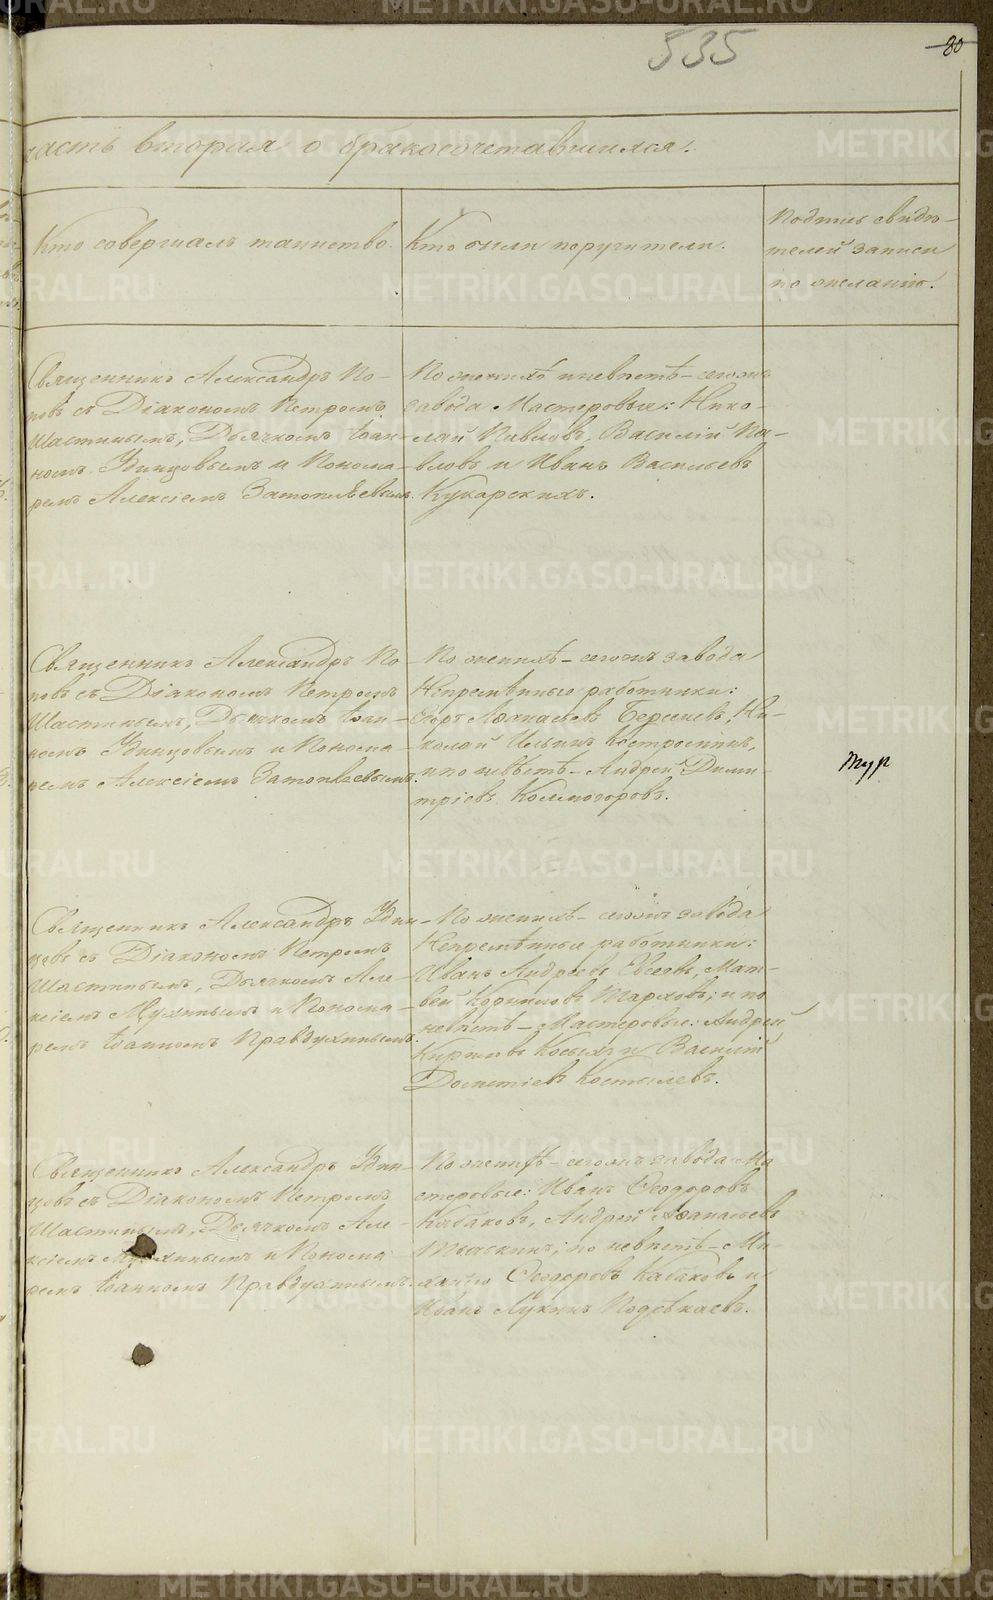 535
80
часть вторая о бракосочетавшихся.
Кто совершалъ таинство.
Кто были поручители.
Подпись свидѣ-
телей записи
по желанію.
Священникъ Александръ По-
повъ съ Діакономъ Петромъ
Шастинымъ, Дьячкомъ Іоан-
номъ Удинцовымъ и Понома-
ремъ Алексіемъ Затопляевымъ.
По женихѣ и невѣстѣ - сегожъ
завода Мастеровые: Нико-
лай Павловъ, Василій Па-
вловъ и Иванъ Васильевъ
Кукарскихъ.
Священникъ Александръ По-
повъ съ Діакономъ Петромъ
Шастинымъ, Дьячкомъ Іоан-
номъ Удинцовымъ и Понома-
ремъ Алексіемъ Затопляевымъ.
По женихѣ - сегожъ завода
Непремѣнные работники:
Егоръ Аѳанасьевъ Берсеневъ, Ни-
колай Ильинъ Костромин,
и по невѣстѣ - Андрей Дими-
тріевъ Колмогоровъ.
тур
Священникъ Александръ Удин-
цовъ съ Діакономъ Петромъ
Шастинымъ, Дьячкомъ Але-
ксіемъ Мухинымъ и Понома-
ремъ Іоанномъ Правдухинымъ.
По женихѣ - сегожъ завода
Непремѣнные работники:
Иванъ Андреевъ Евсеевъ, Мат-
вей Корниловъ Тарховъ; и по
невѣстѣ - Мастеровые: Андрей
Кириловъ Косыхъ и Василій
Дометіевъ Костылевъ.
Священникъ Александръ Удин-
цовъ съ Діакономъ Петромъ
Шастинымъ, Дьячкомъ Але-
ксіемъ Мухинымъ и Понома-
ремъ Іоанномъ Правдухинымъ.
По женихѣ - сегожъ завода Ма-
стеровые: Иванъ Ѳеодоровъ
Кабаковъ, Андрей Аѳанасьевъ
по невѣстѣ - Ми-
Ѳеодоровъ Кабаковъ и
Иванъ Лукинъ Подѣкаевъ.
METRIKI.GASO-URAL.RU